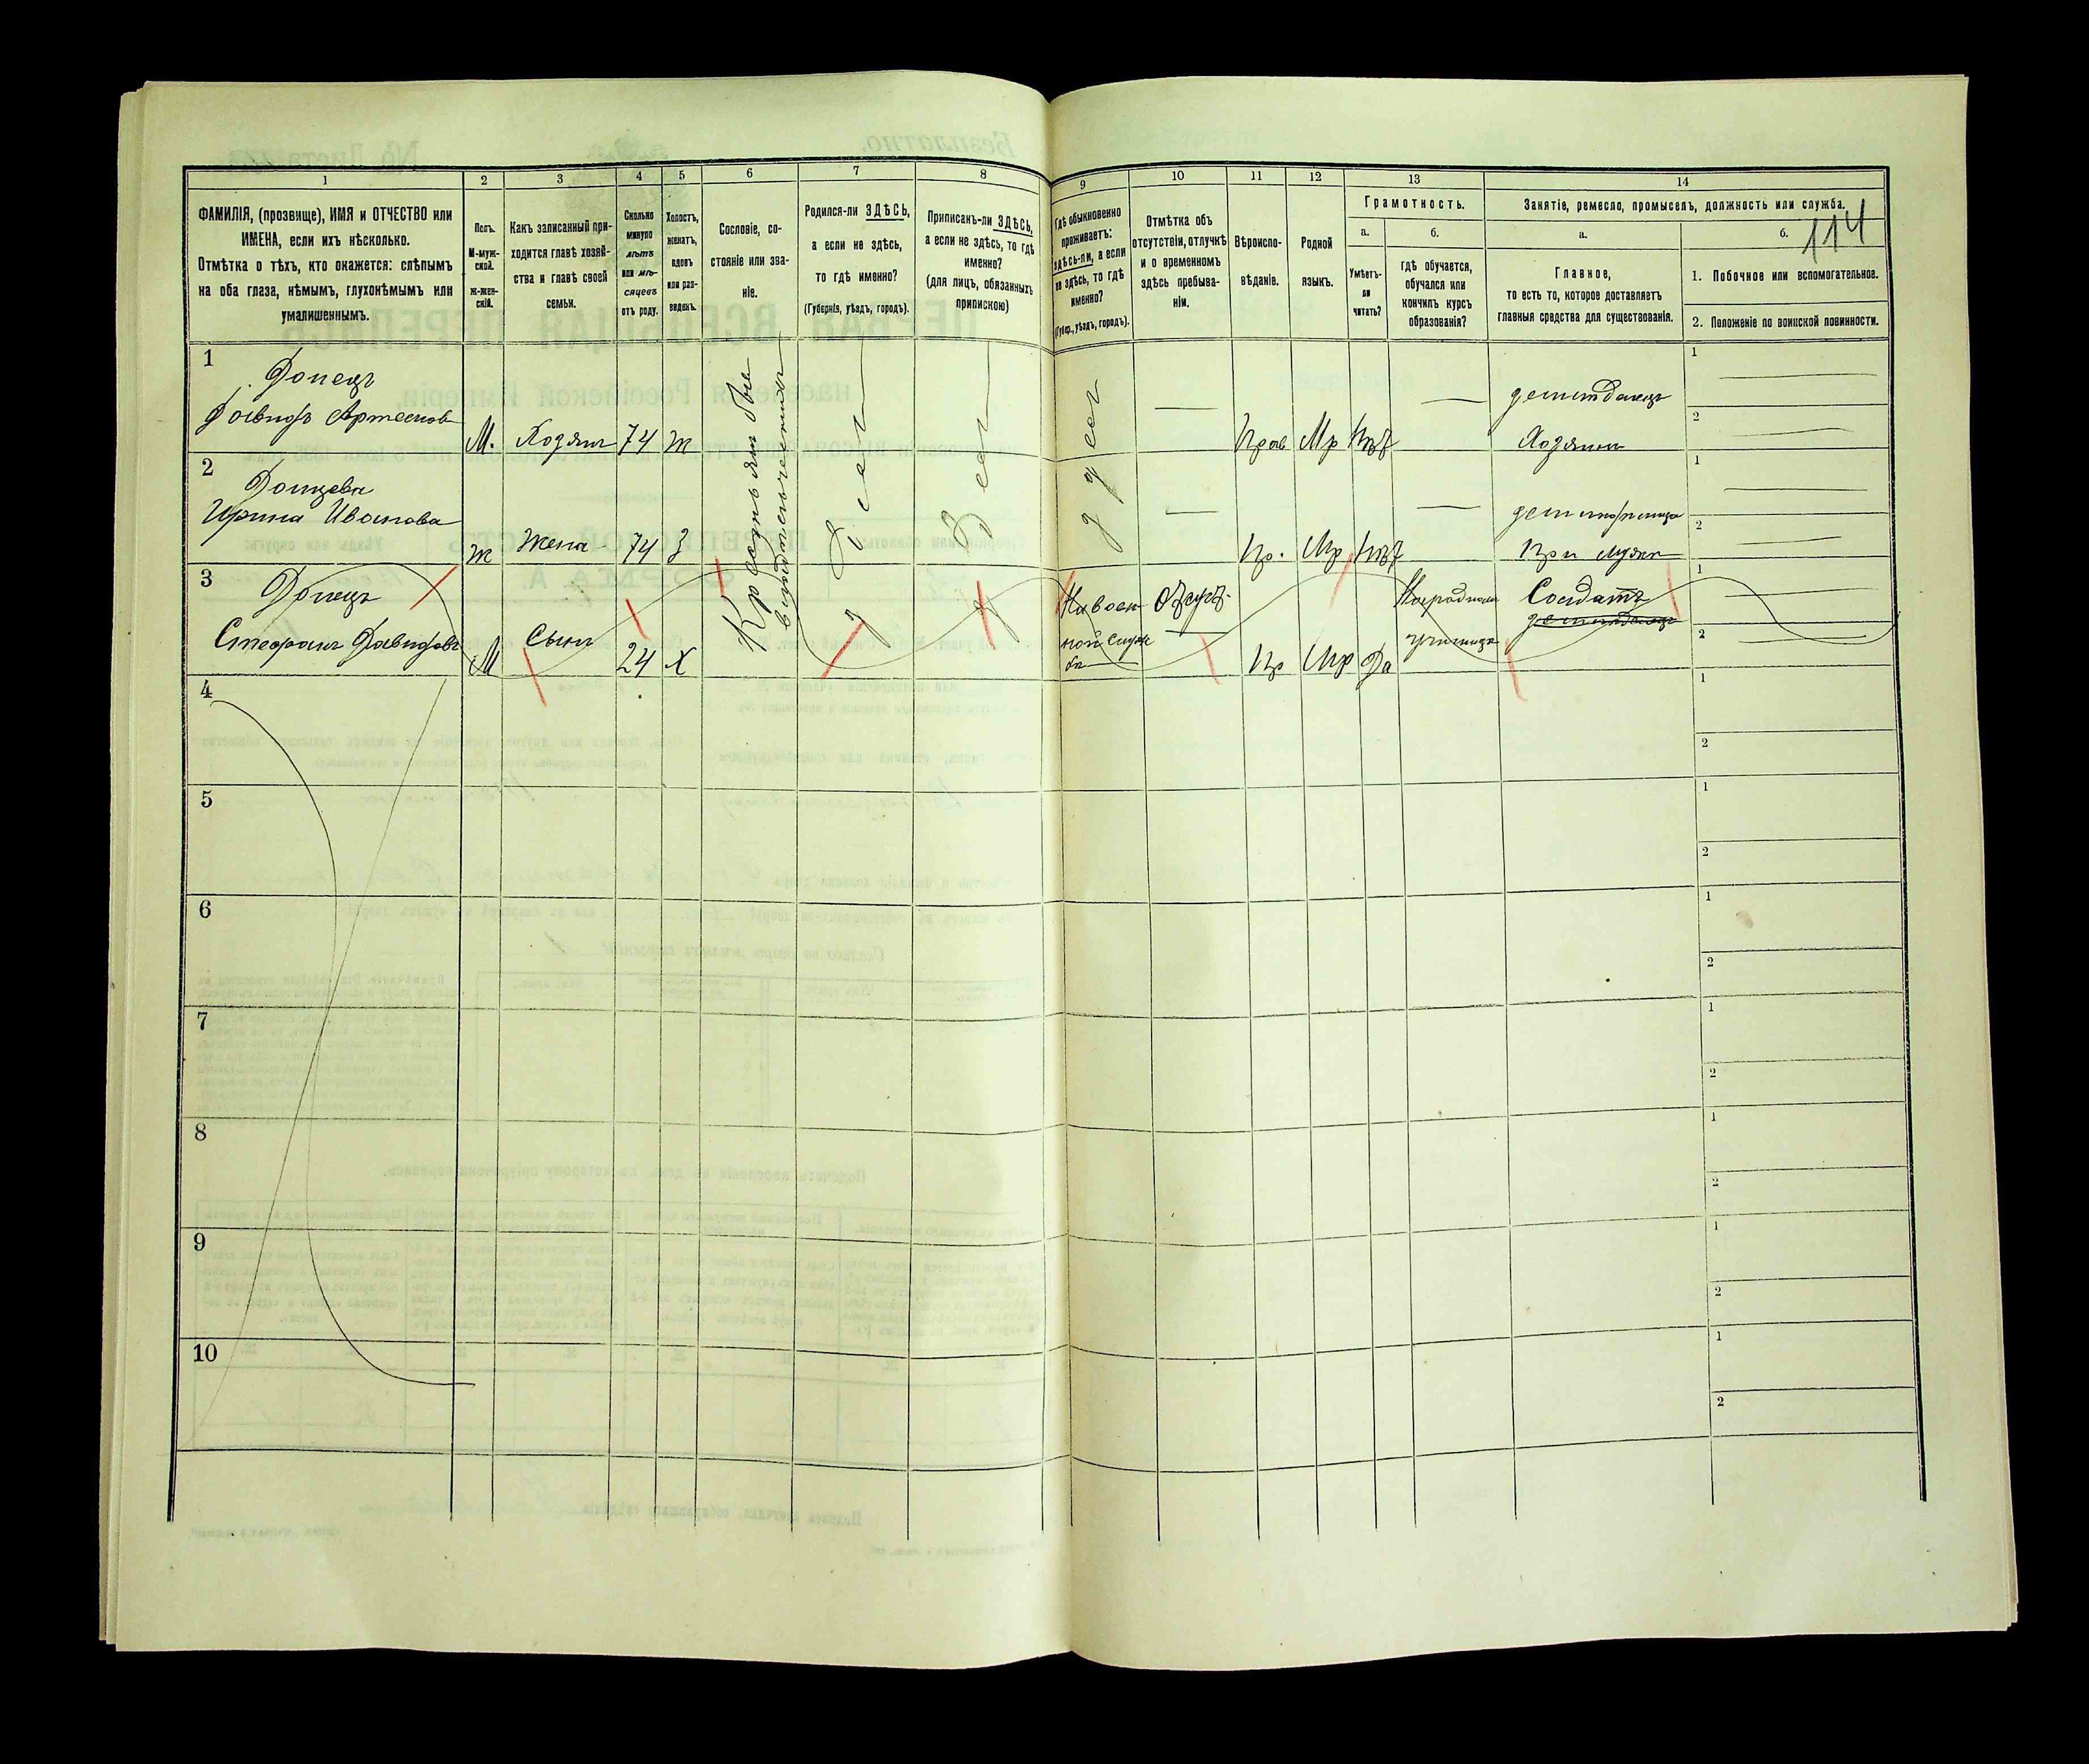 114
1 2 3 4 5 6 7 8 9 10 11 12 13 14
ФАМИЛІЯ, (прозвище), ИМЯ и ОТЧЕСТВО или
ИМЕНА, если ихъ нѣсколько.
Отмѣтка о тѣхъ, кто окажется: слѣпымъ
на оба глаза, нѣмымъ, глухонѣмымъ или
умалишеннымъ.
Полъ.
М-муж-
ской.
Ж-жен-
скій.
Какъ записанный при-
ходится главѣ хозяй-
ства и главѣ своей
семьи.
Сколько
минуло
лѣтъ
или мѣ-
сяцевъ
отъ роду.
Холостъ,
женатъ,
вдовъ
или раз-
веденъ.
Сословіе, со-
стояніе или зва-
ніе.
Родился-ли ЗДѢСЬ,
а если не здѣсь,
то гдѣ именно?
(Губернія, уѣздъ, городъ).
Приписанъ-ли ЗДѢСЬ,
а если не здѣсь, то гдѣ
именно?
(для лицъ, обязанныхъ
припискою)
Гдѣ обыкновенно
проживаетъ:
здѣсь-ли, а если
не здѣсь, то гдѣ
именно?
(Губер., уѣздъ, городъ).
Отмѣтка объ
отсутствіи, отлучкѣ
и о временномъ
здѣсь пребыва-
ніи.
Вѣроиспо-
вѣданіе.
Родной
языкъ.
Грамотность.
а.
Умѣетъ-
ли
читать?
б.
гдѣ обучается,
обучался или
кончилъ курсъ
образованія?
Занятіе, ремесло, промыселъ, должность или служба.
а.
Главное,
то есть то, которое доставляетъ
главныя средства для существованія.
б.
1. Побочное или вспомогательное.
2. Положеніе по воинской повинности.
1 Донецъ
Давидъ Артемов
М. Хозяин 74 ж
Здесь
Здесь
здесь
Прав Мр Нѣт
Хозяин
2 Донцева
Ирина Иванова
ж Жена 74 З
Пр. Мр Нѣт
При мужѣ
3 Донецъ
Стефанъ Давидовъ
М Сынъ 24 Х
На воен
ной служ
бе
Отсут.
Пр Мр Да
Народном
училище
Солдатъ
4
5
6
7
8
9
10